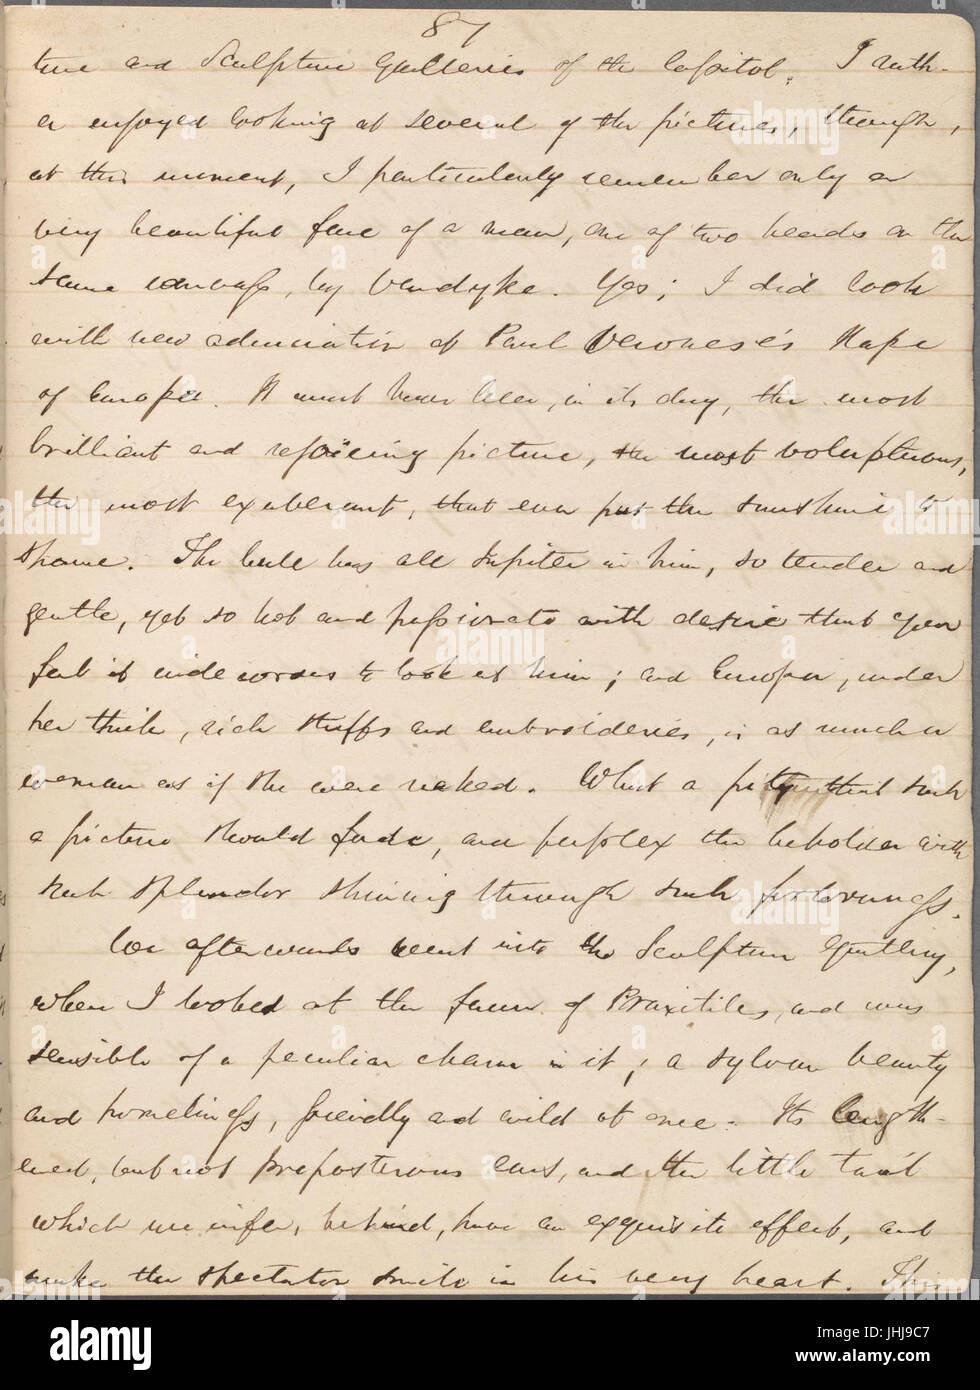 87
ture and Sculpture Galleries of the Capitol. I rath-
er enjoyed looking at several of the pictures, though,
at this moment, I particularly remember only a
very beautiful face of a man, one of two heads on the
same canvass, by Vandyke. Yes; I did look
with new admiration at Paul Veronese's Rape
of Europa. It must have been, in its day, the most
brilliant and rejoicing picture, the most voluptuous,
the most exuberant, that ever put the sunshine to
shame. The bull has all Jupiter in him, so tender and
gentle, yet so hot and passionate with desire that you
feel it indecorous to look at him; and Europa, under
her thick, rich stuffs and embroideries, is as much a
woman as if she were naked. What a pity that such
a picture should fade, and perplex the beholder with
such splendor shining through such forlornness.
We afterwards went into the Sculpture Gallery,
where I looked at the Faun of Praxitiles, and was
sensible of a peculiar charm in it; a sylvan beauty
and homeliness, friendly and wild at once. Its length-
ened, but not preposterous ears, and the little tail
which we infer, behind, have an exquisite effect, and
make the spectator smile in his very heart. This
alamy stock photo
JHJ9C7
www.alamy.com